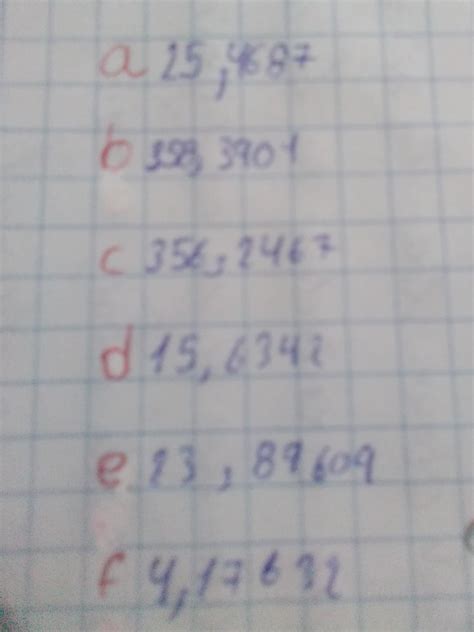 a 25,4687
b 398,3901
c 356,2467
d 15,6342
e 23,89609
f 4,17632